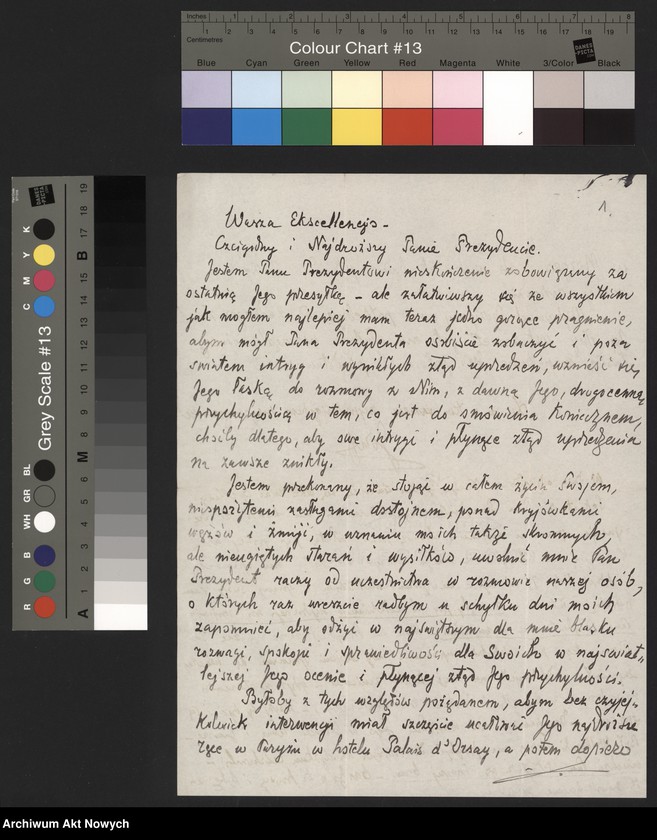 Inches 1 2 3 4 5 6 7 8
Centimetres 1 2 3 4 5 6 7 8 9 10 11 12 13 14 15 16 17 18 19
Colour Chart #13
Blue Cyan Green Yellow Red Magenta White 3/Color Black
DANES PICTA
Grey Scale #13
C M Y K
R G B WH GR BL
A 1 2 3 4 5 6 M 8 9 10 11 12 13 14 15 B 17 18 19
1.
Wasza Ekscellencjo –
Czcigodny i Najdroższy Panie Prezydencie.
Jestem Panu Prezydentowi nieskończenie zobowiązany za
ostatnią Jego przesyłkę – ale załatwiwszy się ze wszystkiem
jak mogłem najlepiej mam teraz jedno gorące pragnienie,
abym mógł Pana Prezydenta osobiście zobaczyć i poza
światem intryg i wynikłych ztąd uprzedzeń, wznieść się
Jego łaską do rozmowy z Nim, z dawną Jego, drogocenną
przychylnością w tem, co jest do omówienia koniecznem,
choćby dlatego, aby owe intrygi i płynące ztąd uprzedzenia
na zawsze znikły.
Jestem przekonany, że stojąc w całem życiu Swojem,
niespożytemi zasługami dostojnem, ponad kryjówkami
wężów i żmij, w uznaniu moich także skromnych,
ale nieugiętych starań i wysiłków, uwolnić mnie Pan
Prezydent raczy od uczestnictwa w rozmowie naszej osób,
o których raz wreszcie radbym u schyłku dni moich
zapomnieć, aby odżyć w najświętszym dla mnie blasku
rozwagi, spokoju i sprawiedliwości dla Swoich w najświat-
lejszej Jego ocenie i płynącej ztąd Jego przychylności.
Byłoby z tych względów pożądanem, abym bez czyjej-
kolwiek interwencji miał szczęście ucałować Jego najdroższe
ręce w Paryżu w hotelu Palais d'Orsay, a potem dopiero
Archiwum Akt Nowych